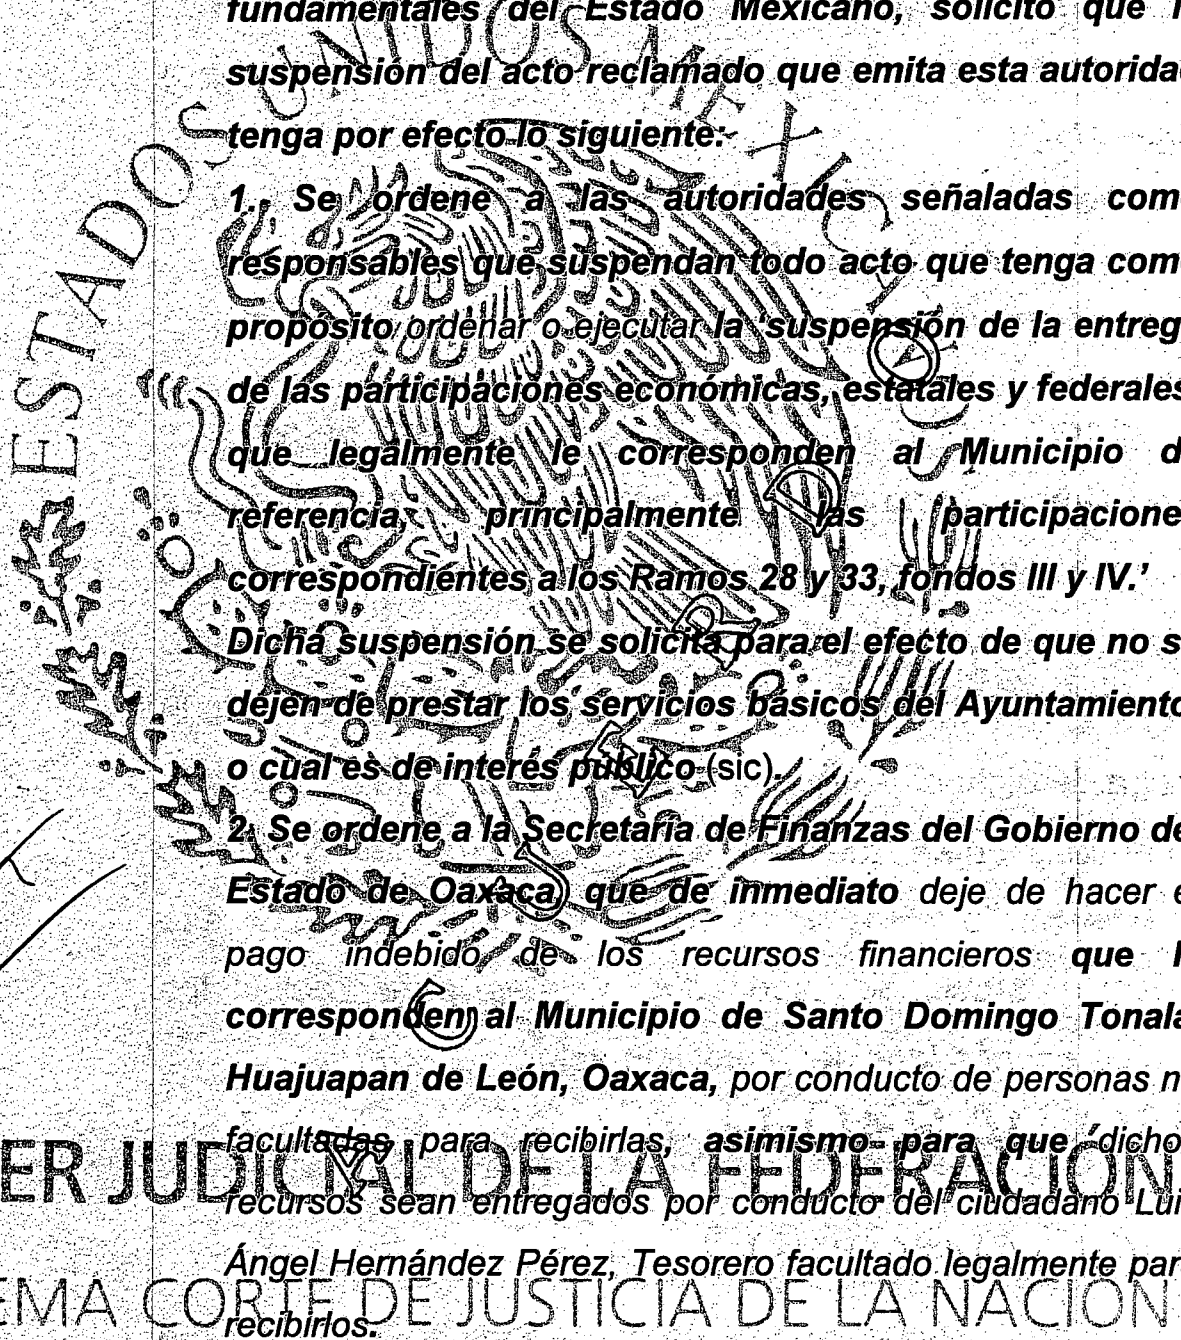 fundamentales del Estado Mexicano, solicito que l
suspensión del acto reclamado que emita esta autorida
tenga por efecto lo siguiente:
1. Se ordene a las autoridades señaladas com
responsables que suspendan todo acto que tenga com
propósito ordenar o ejecutar la 'suspensión de la entreg
de las participaciones económicas, estatales y federales
que legalmente le corresponden al Municipio d
referencia, principalmente las participacione
correspondientes a los Ramos 28 y 33, fondos III y IV.'
Dicha suspensión se solicita para el efecto de que no s
dejen de prestar los servicios básicos del Ayuntamiento
o cual es de interés público (sic).
2. Se ordene a la Secretaría de Finanzas del Gobierno de
Estado de Oaxaca, que de inmediato deje de hacer e
pago indebido de los recursos financieros que l
corresponden al Municipio de Santo Domingo Tonala
Huajuapan de León, Oaxaca, por conducto de personas n
facultadas para recibirlas, asimismo para que dicho
recursos sean entregados por conducto del ciudadano Lui
Ángel Hernández Pérez, Tesorero facultado legalmente par
recibirlos.
ESTADOS UNIDOS MEXICANOS
ER JUDICIAL DE LA FEDERACIÓN
EMA CORTE DE JUSTICIA DE LA NACIÓN